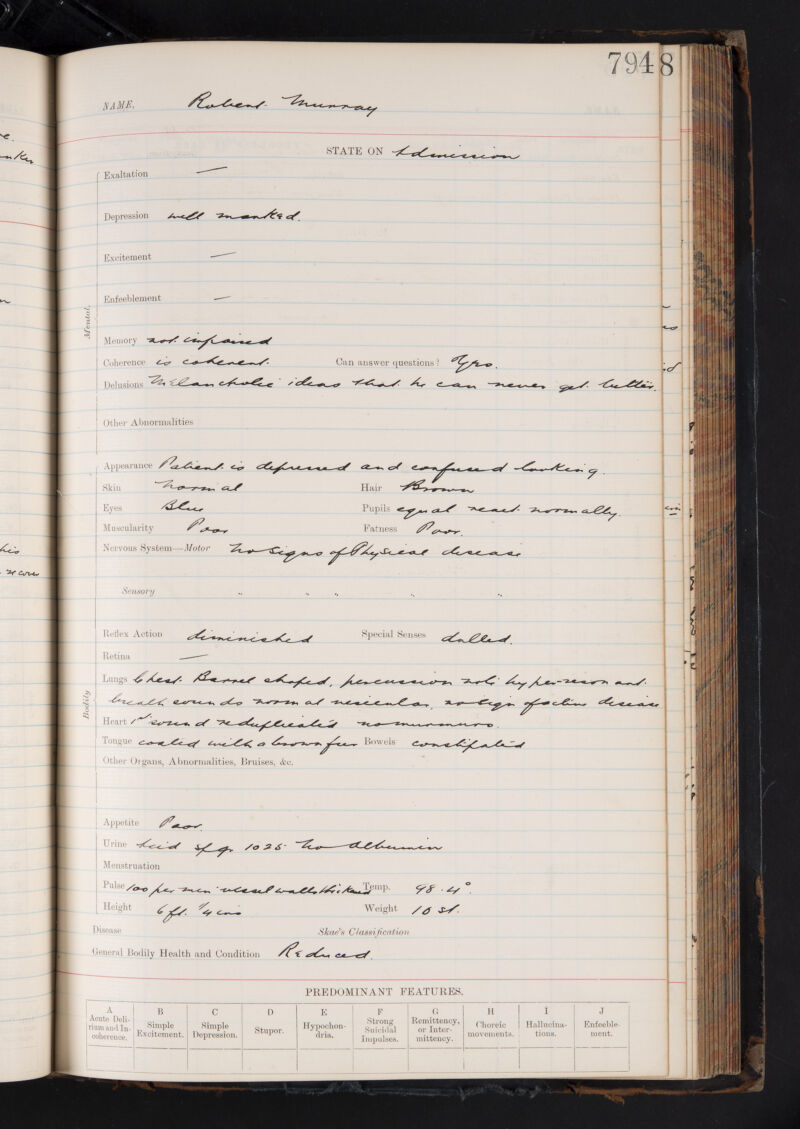 7948
NAME, Robert Murray
STATE ON Admission
Exaltation —
Depression well marked.
Excitement —
Enfeeblement —
Mental.
Memory not impaired
Coherence is coherent. Can answer questions? Yes.
Delusions Melancholic ideas that he can never get better.
Other Abnormalities
Appearance Patient is depressed and confused looking.
Skin Normal Hair Brown
Eyes Blue Pupils equal react normally.
Muscularity Poor Fatness Poor.
Nervous System—Motor No signs of Physical disease
Sensory " " " " "
Reflex Action diminished Special Senses dulled.
Retina —
Bodily
Lungs Chest. Barrel shaped, percussion note hyperresonant.
breath sounds normal vesicular, no sign of active disease
Heart 1st sound reduplicated no murmurs.
Tongue coated with a brown fur Bowels constipated
Other Organs, Abnormalities, Bruises, &c.
Appetite Poor.
Urine Acid sp gr 1025 No Albumin
Menstruation
Pulse 100 per min vessel walls thickened Temp. 98.4°.
Height 6 ft. 1/4 ins Weight 10 st.
Disease Skae's Classification
General Bodily Health and Condition Reduced.
PREDOMINANT FEATURES.
A B C D E F G H I J
Acute Deli-rium and In-coherence. Simple Excitement. Simple Depression. Stupor. Hypochon-dria. Strong Suicidal Impulses. Remittency, or Inter-mittency. Choreic movements. Hallucina-tions. Enfeeble-ment.